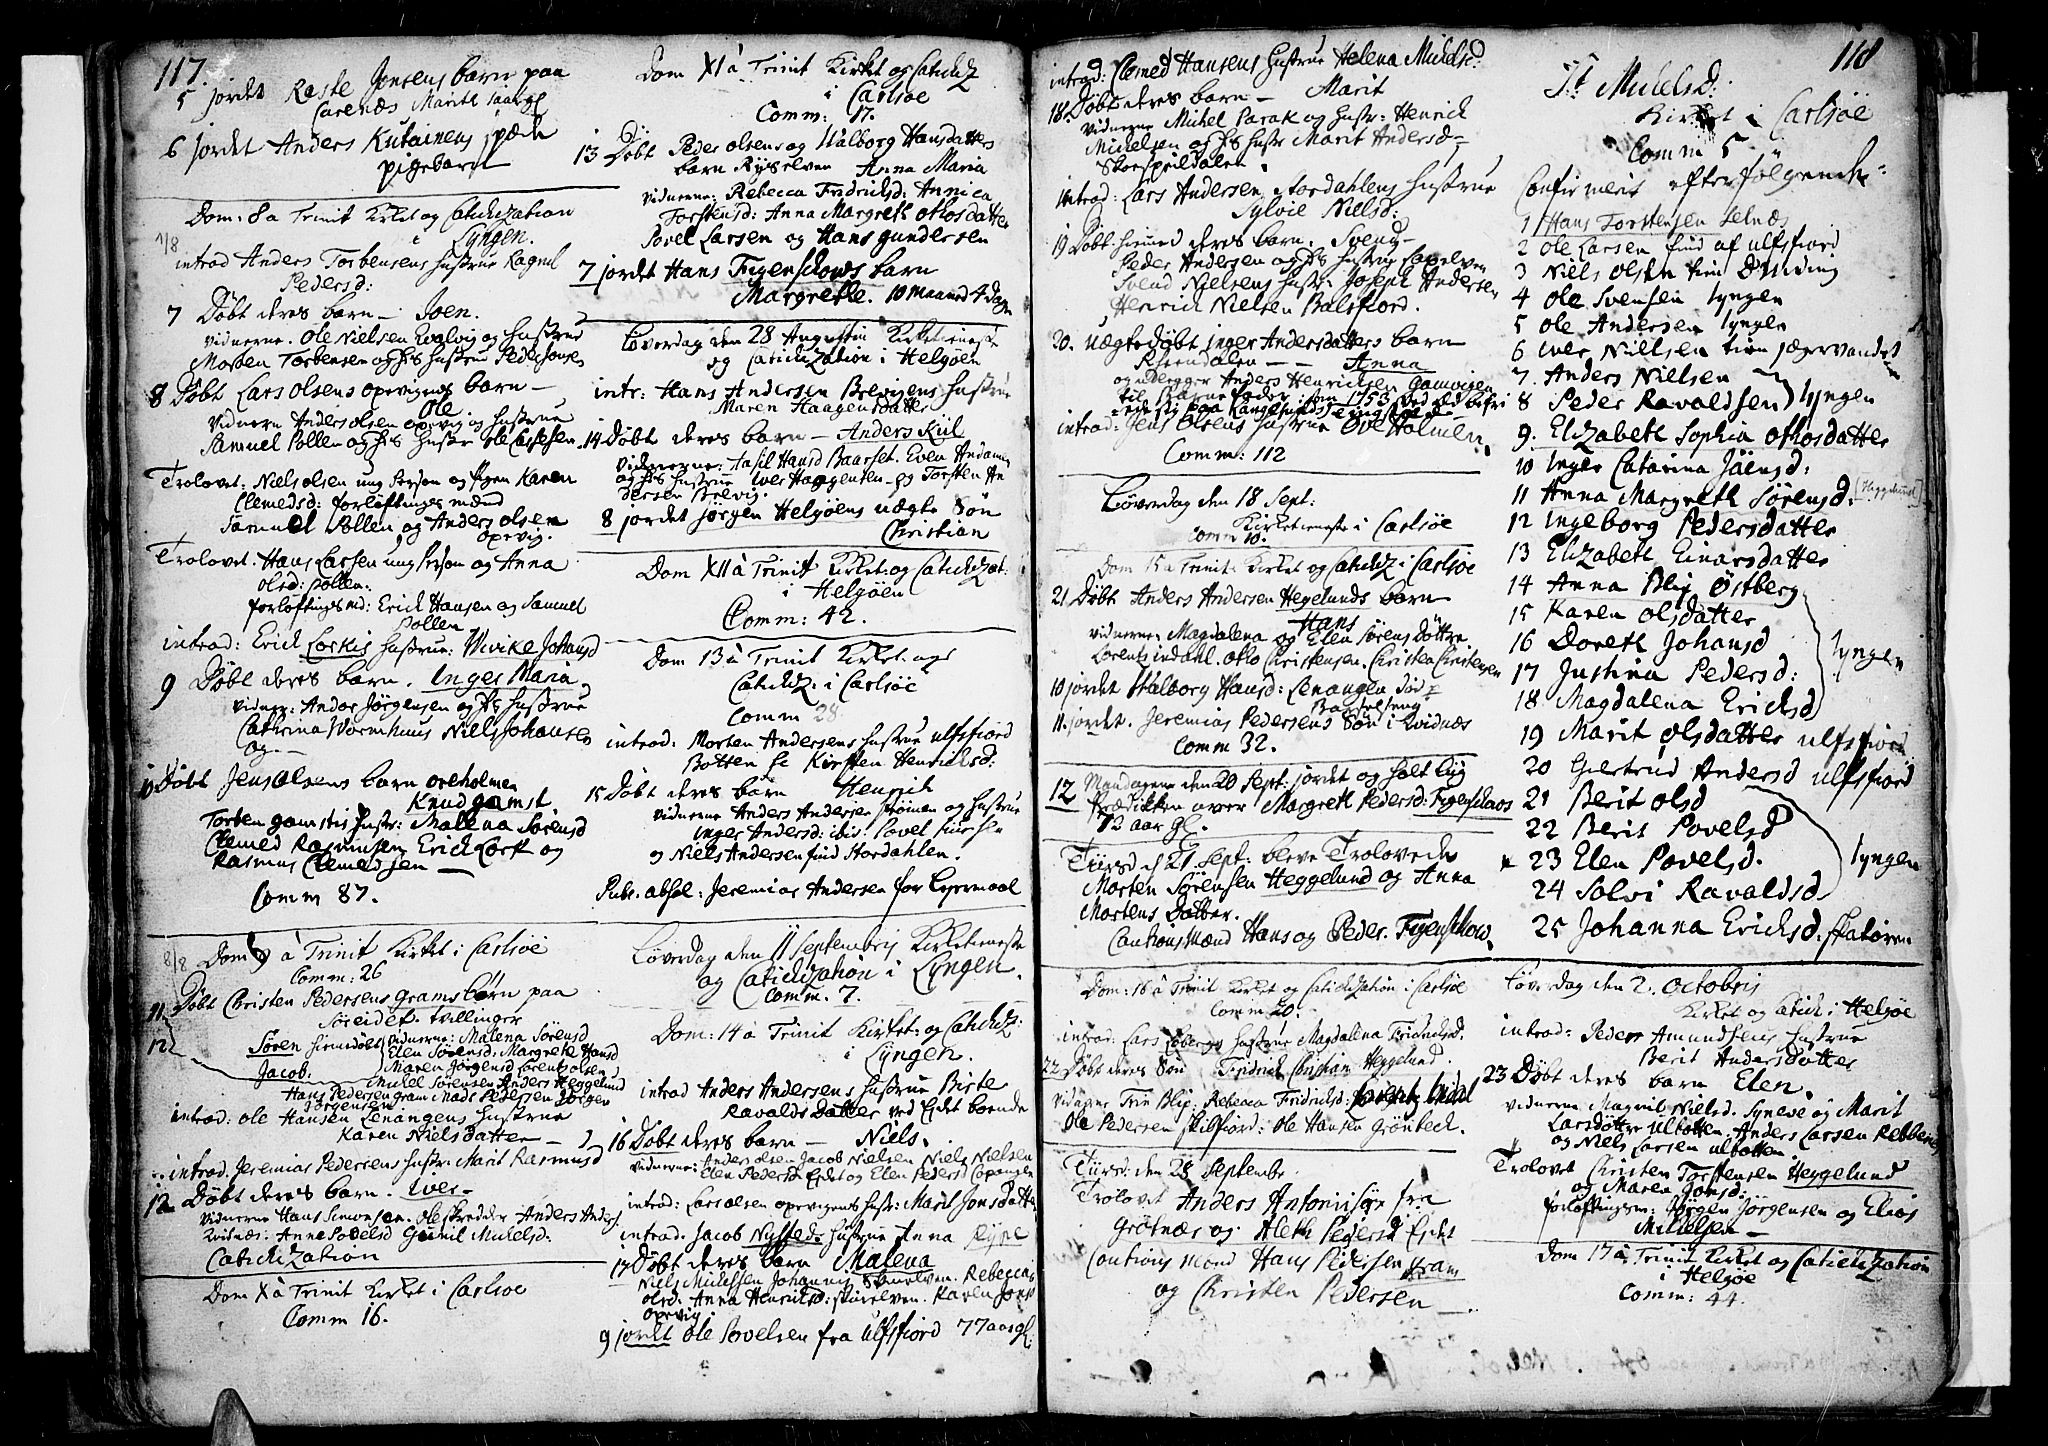 117.
5 jordet Raste Jonsens barn paa
Carenæs Marite
6 jordet Anders Kutainens spæde
pigebarn
Dom: 8 a Trinit Kirket og Catichization
i Lyngen.
1/8
introd Anders Torbensens hustrue Ragnel
Pedersd:
7 Døbt deres barn – Joen.
vidnerne. Ole Nielsen og hustrue
Morten Torbensen og hs hustrue Peder Jonsen
8 Døbt Lars Olsens opevigens barn –
Ole
Vidnern Anders Olsen opevig og hustrue
Samuel Pollen og hs hustr Ole
Trolovet: Niels Olsen ung Person og Pigen Karen
Clemedsd: forløftinges mænd
Samuel Pollen og Anders Olsen
opevig.
Trolovet. Hans Larsen ung Person og Anna
Olsd: Pollen.
forløftingsmd: Erick Hansen og Samuel
Pollen
introd: Erick Lorkis hustrue: Wivike Johansd
9 Døbt deres barn. Inger Maria
vidner: Andor Jørgensen og hs hustrue
Cathrina Wormhuus Niels Johansen
og –
10 Døbt Jens Olsens barn oreholmen
Knud gamst.
Torben gamstis hustr: Malena Sørensd
Clemed Rasmusen Erick Lork og
Rasmus Clemedsen –
Comm 87.
8/8 Dom 9 a Trinit Kirket i Carlsøe
Comm: 26
11. Døbt Christen Pedersens Grams børn paa
Søreidet. tvillinger
12 Søren hiemedøbt vidnerne: Malena Sørensd
Elen Sørensd: Margrete Hansd
Jacob. Maren Jørgensd Lorents Olsen
Mickel Sørensen Anders Heggelund
Hans Pedersen gram Mads Pedersen Jørgen
Jørgensen
introd: Ole Hansen Lenangens hustrue
Karen Nielsdatter –
introd. Jeremias Pedersens hustr: Marit Rasmusd
12 Døbt deres barn. Iver –
Vidnerne Hans Simonsen. Ole Anders Anders
Kvitnæs: Anne Povelsd Gunil Mickelsd:
Catichization
Dom X a Trinit Kirket i Carlsøe
Comm 16.
Dom XI a Trinit Kirket og Catichiz
i Carlsøe
Comm: 17.
13 Døbt Peder Olsens og Walborg Hansdatters
barn Ryselven Anna Maria
vidnerne: Rebecca Fredricksd: Annica
Torstensd: Anna Margreth Othosdatter
Povel Larsen og Hans gundersen
7 jordet Hans Figenschows barn
Margrethe. 10 maaned 4 dage
Løverdag den 28 Augustii Kirketieneste
og Catichization i Helgøen
intr: Hans Andersen Brevigens hustrue
Maren Haagensdatter
14 Døbt deres barn – Anders Kiil
Vidnerne: Aasil Hansd Baarset. Even
og hs hustrue Iver Haagensen og Torsten An
dersen Brevig.
8 jordet Jørgen Helgøens uægte Søn
Christian
Dom XII a Trinit Kirket og Catichizat:
i Helgøen
Comm: 42.
Dom 13 a Trinit Kirket og
Catichiz: i Carlsøe
Comm 28
introd: Morten Andersens hustrue ulfsfiord
Botten Kirsten Henricksd:
15 Døbt deres barn Henrich
vidnerne Anders Andersen Strømen og hustrue
Inger Andersd: ibid: Povel
og Niels Andersen find Stordahlen.
Pub. absol: Jeremias Andersen for Leyermaal
Løverdag den 11 Septembris Kirketieneste
og Catichization i Lyngen.
Comm. 7.
Dom: 14 a Trinit Kirket: og Catichiz:
i Lyngen.
introd Anders Andersens hustrue Birte
Ravalds Datter ved Eidet boende
16 Døbt deres barn – Niels.
Vidnerne: Anders Olsen Jacob Nielsen Niels Nielsen
Elen Pedersd Eidet og Elen Pedersd
introd: Lars Olsen opevigens hustr: Marit Jonsdatter
introd: Jacob Nysteds hustrue Anna Rype
17 Døbt deres barn Malena
Niels Mickelsen Johannis Skoeelven. Rebecca
Olsd. Anna Henricksd: skoeelven. Karen Jonsd
opevig
9 jordet Ole Povelsen fra ulfsfiord 77 aar gl.
118
introd: Clemed Hansens hustrue Helena Mickelsd:
18. Døbt deres barn – Marit
Vidnerne Mickel Parak og hustr: Henrick
Mickelsen og hs hustr Marit Andersd –
Skoesprildalen.
introd: Lars Andersen Stordahlens hustrue
Sylvie Nielsd:
19 Døbt. hiemed deres barn. Svend –
Peder Andersen og hs hustrue
Svend Nielsens hustr. Joseph Andersen
Henrick Nielsen Balsfiord.
20. uægtedøbt inger Andersdatters barn
– – Anna
og udlegger Anders Henricksen Gamvigen
til Barnefader som 1753
introd: Jens Olsens hustrue Oreholmen.
Comm: 112
Løverdag den 18 Sept:
Kirketieneste i Carlsøe
Comm 10.
Dom 15 a Trinit: Kirket og Catichiz i Carlsøe
21 Døbt Anders Andersen Hegelunds barn
Hans
vidnerne: Magdalena og Elen Sørens Døttre
Lorents indahl. Otho Christensen. Christen Christensen
10 jordet Walborg Hansd: Lenangen død
Barselseng
11. jordet. Jeremias Pedersens Søn i Kvidnæs
Comm 32.
12 Mandagen den 20 Sept: jordet og holt Liig
Prædicken over Margreth Pedersd: Figenschaos
72 aar gl.
Tiirsd d 21 Sept: bleve Trolovede
Morten Sørensen Heggelund og Anna
Mortens Datter.
Cautions Mænd Hans og Peder. Figenschow.
Dom: 16 a Trinit Kirket og Catichization i Carlsøe
Comm 20.
introd: Lars hustrue Magdalena Fridricksd.
22 Døbt deres Søn Fridrick Christian Heggelund.
Vidner Trin Blix. Rebecca Fridricksd:
Ole Pedersen skilfiord: Ole Hansen Grønbeck.
Tiirsd: den 28 Septembr.
Trolovet Anders Antonisøn fra
Grøtnæs og Aleth Pedersd Eidet
Cautions mænd Hans Pedersen gram
og Christen Pedersen –
Ft Mickelsd:
Kirket i Carlsøe
Comm 5
Confirmerit efterfølgende:
1 Hans Torstensen
2 Ole Larsen find af ulfsfiord
3 Niels Olsen
4 Ole Svensen Lyngen
5 Ole Andersen Lyngen
6 Iver Nielsen tien jægervandet
7. Anders Nielsen
8 Peder Ravaldsen } Lyngen
9. Elizabeth Sophia Othosdatter
10 Inger Catarina Joensd:
11 Anna Margreth Sørensd. (Heggelund)
12 Ingeborg Pedersdatter
13 Elizabeth Einarsdatter
14 Anna Blix Østberg
15 Karen Olsdatter
16 Doreth Johansd
17 Justina Pedersd:
18 Magdalena Ericksd
Lyngen
19 Marit Olsdatter ulfsfiord
20 Giertrud Andersd ulfsfiord
21 Berit Olsd
22 Berit Povelsd
23 Elen Povelsd.
24 Solvi Ravaldsd
Lyngen
25 Johanna Ericksd: skatøren
Løverdag den 2. Octobris
Kirket og Catich: i Helgøe
introd: Peder Amundsens hustrue
Berit Andersdatter
23 Døbt deres barn Elen.
vidnerne Magnil Nielsd. Syneve og Marit
Larsdøttre Ulbotten. Anders Larsen
og Niels Larsen ulbotten
Trolovet Christen Torstensen Heggelund
og Maren Jonsd:
forløftingsm: Jørgen Jørgensen og Elias
Mickelsen –
Dom 17 a Trinit Kirket og Catichization
i Helgøe
Comm: 44.